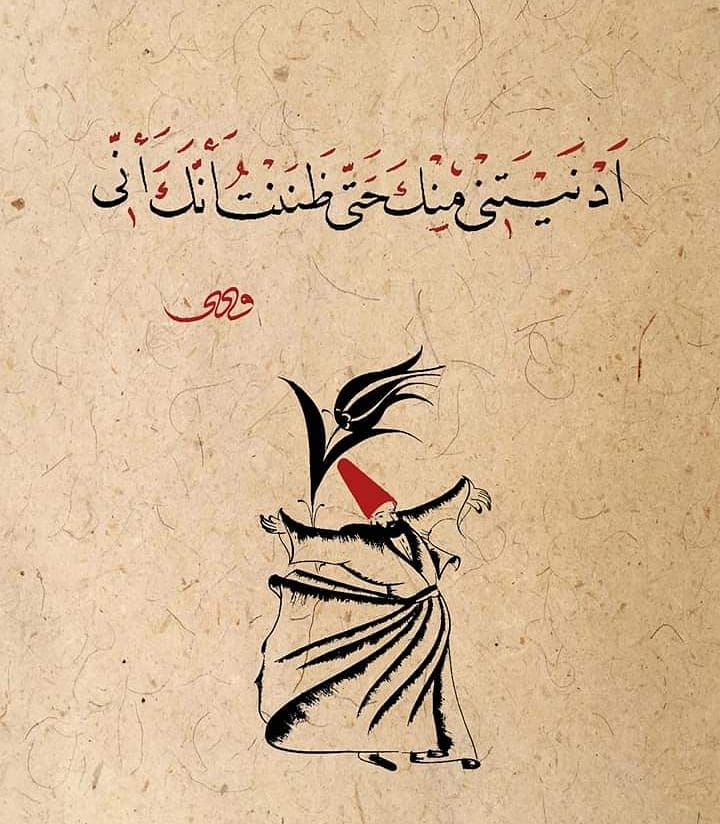 اَدْنَيْتَنِي مِنْكَ حَتَّى ظَنَنْتُ أَنَّكَ أَنِّي